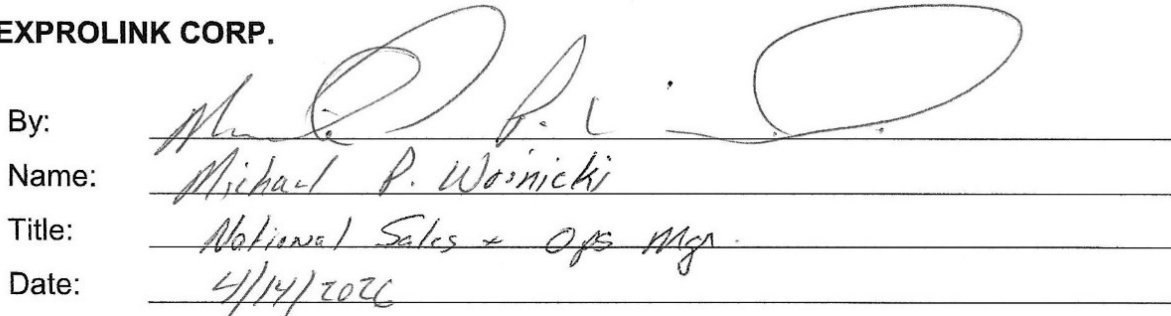 EXPROLINK CORP.
By:
Name: Michael P. Wosnicki
Title: National Sales + Ops Mgr.
Date: 4/14/2026